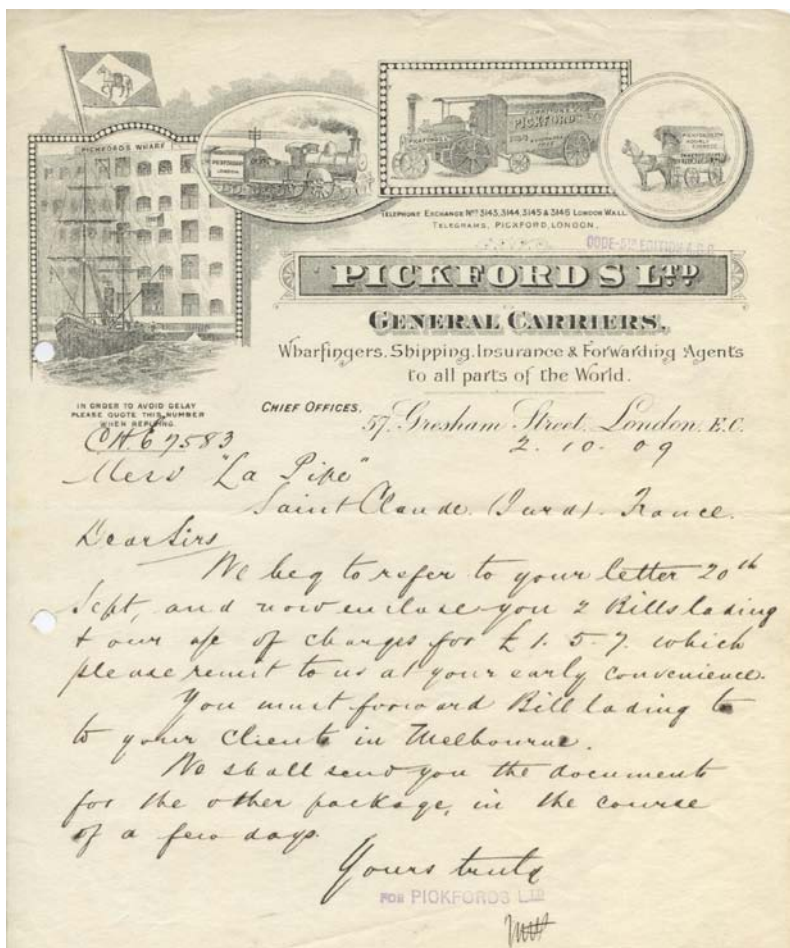 PICKFORDS WHARF
PICKFORDS
LONDON
PICKFORDS
PICKFORDS LTD
TELEPHONE EXCHANGE Nos 3143, 3144, 3145 & 3146 LONDON WALL.
TELEGRAMS, PICKFORD, LONDON.
CODE-5TH EDITION A.B.C.
PICKFORDS LTD
GENERAL CARRIERS,
Wharfingers, Shipping, Insurance & Forwarding Agents
to all parts of the World.
IN ORDER TO AVOID DELAY
PLEASE QUOTE THIS NUMBER
WHEN REPLYING.
CHIEF OFFICES,
57, Gresham Street, London. E.C.
67583
2. 10. 09
Mess "La Pipe"
Saint Claude (Jura). France.
Dear Sirs
We beg to refer to your letter 20th
Sept, and now enclose you 2 Bills lading
+ our a/c of charges for £1. 5. 7. which
please remit to us at your early convenience.
You must forward Bill lading to
to your Clients in Melbourne.
We shall send you the documents
for the other package, in the course
of a few days.
Yours truly
FOR PICKFORDS LTD